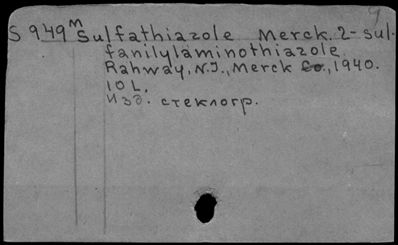 S 949 m Sulfathiazole Merck. 2-sul-
fanilylaminothiazole.
Rahway, N.J., Merck Co., 1940.
10 L.
Изд. стеклогр.